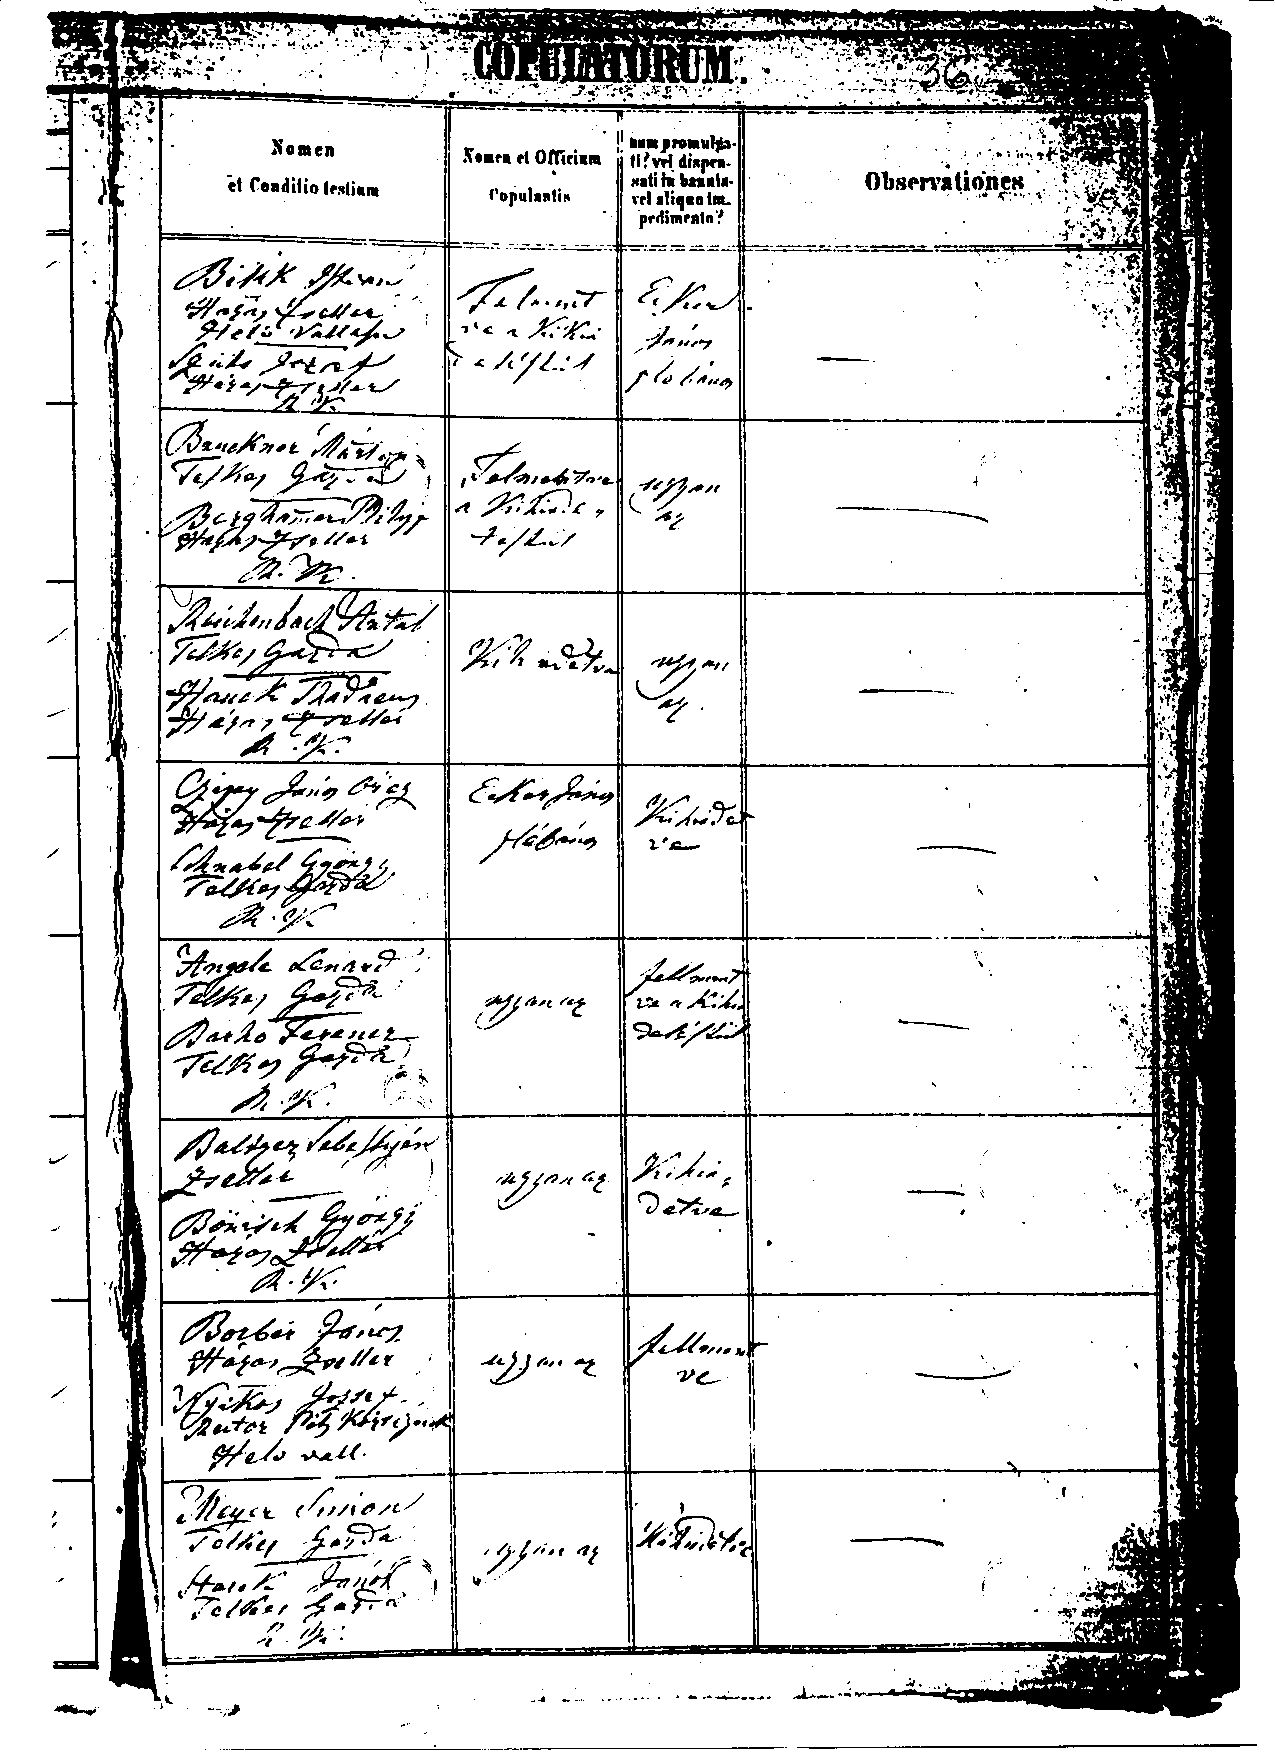 COPULATORUM.
36
Nomen
et Conditio testium
Nomen et Officium
Copulantis
num promulga-
ti? vel dispen-
sati in bannis
vel aliquo im-
pedimento?
Observationes
Házas Zseller
Helv Vallasu
József
Házas Zseller
R. K.
Felment
ve a Kihir
detéstül
Eker
János
plébános
Bruckner Márton
Telkes Gazda
Berghamer Philipp
Házas Zseller
R. K.
Felmentve
a Kihirde,
téstül
ugyan
az
Reichenbach Antal
Telkes Gazda
Hauck Thadaeus
Házas Zseller
R. K.
Kihirdetve
ugyan
az
János
Házas Zseller
Schnabel György
Telkes Gazda
R. K.
Eker János
plébános
Kihirdet
ve
Angele Lenard
Telkes Gazda
Barko Ferencz
Telkes Gazda
R. K.
ugyan az
fellment
ve a Kihir
detéstül
Baltzer Sebestyén
Zseller
Bönisch György
Házas Zseller
R. K.
ugyan az
Kihir,
detve
Borbér János
Házas Zseller
Nyikos Jossef
Rector
Helv vall.
ugyan az
fellment
ve
Meyer Simon
Telkes Gazda
Hauck János
Telkes Gazda
R. K.
ugyan az
Kihirdetve